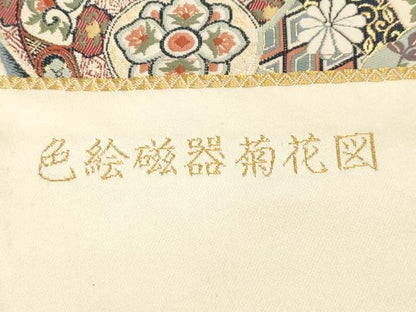 色絵磁器菊花図